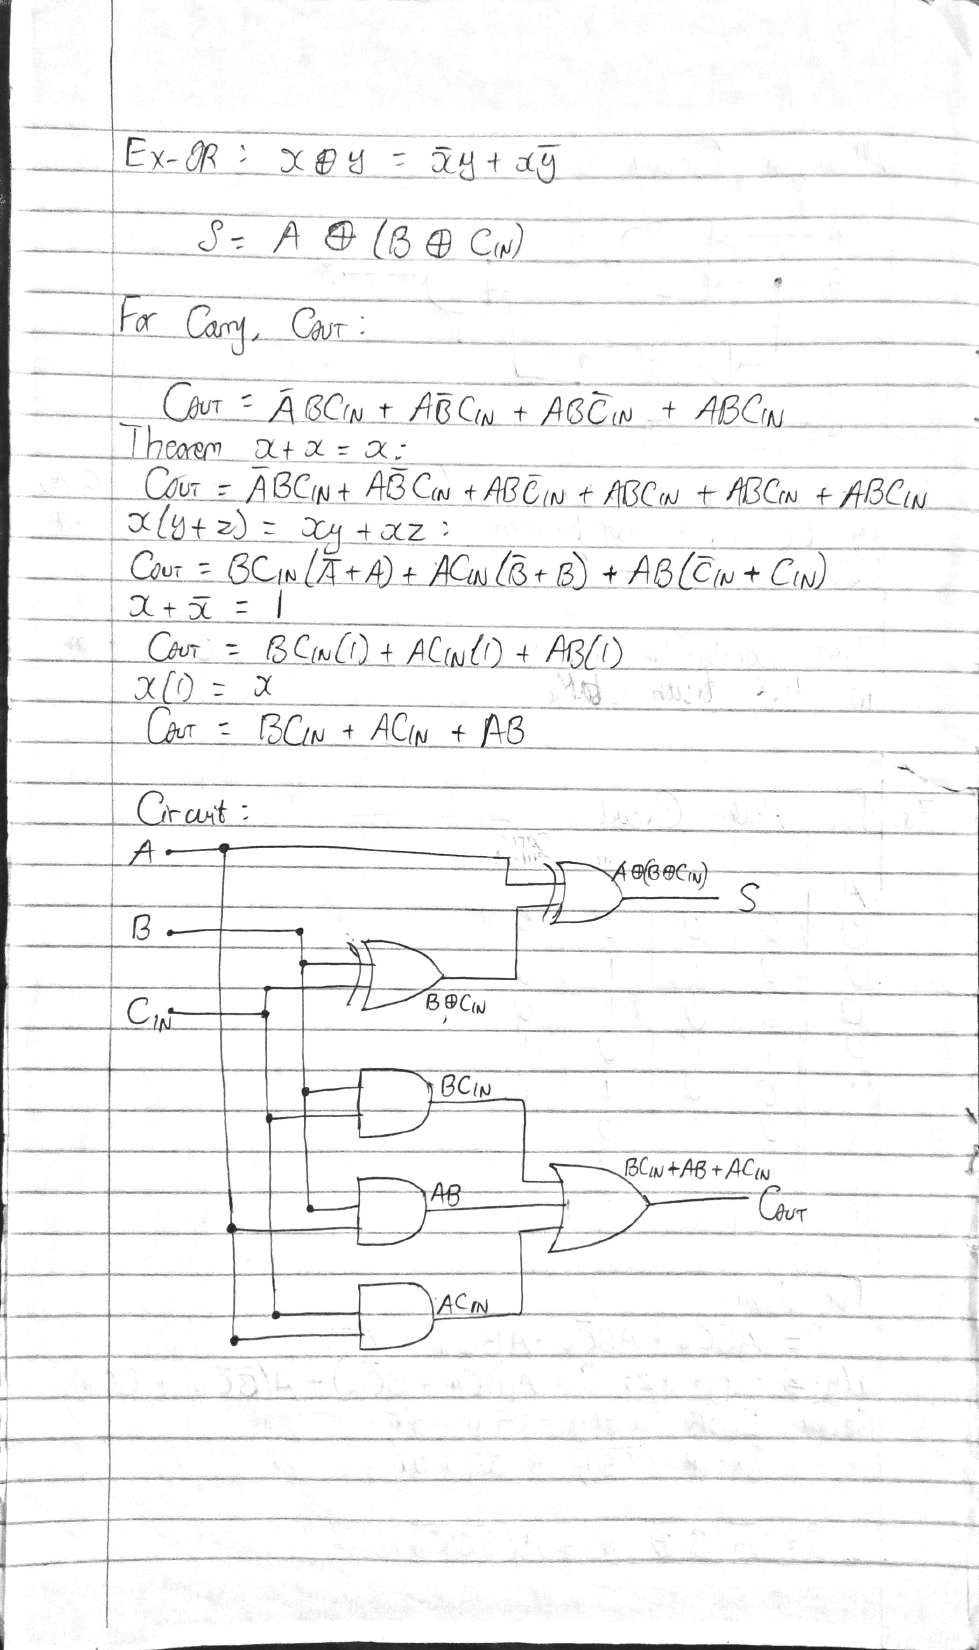 Ex-OR : x ⊕ y = x̄y + xȳ
S = A ⊕ (B ⊕ CIN)
For Carry, COUT :
COUT = ĀBCIN + AB̄CIN + ABC̄IN + ABCIN
Theorem x + x = x :
COUT = ĀBCIN + AB̄CIN + ABC̄IN + ABCIN + ABCIN + ABCIN
x(y+z) = xy + xz :
COUT = BCIN(Ā+A) + ACIN(B̄+B) + AB(C̄IN + CIN)
x + x̄ = 1
COUT = BCIN(1) + ACIN(1) + AB(1)
x(1) = x
COUT = BCIN + ACIN + AB
Circuit :
A
A⊕(B⊕CIN)
S
B
B⊕CIN
CIN
BCIN
BCIN + AB + ACIN
AB
COUT
ACIN